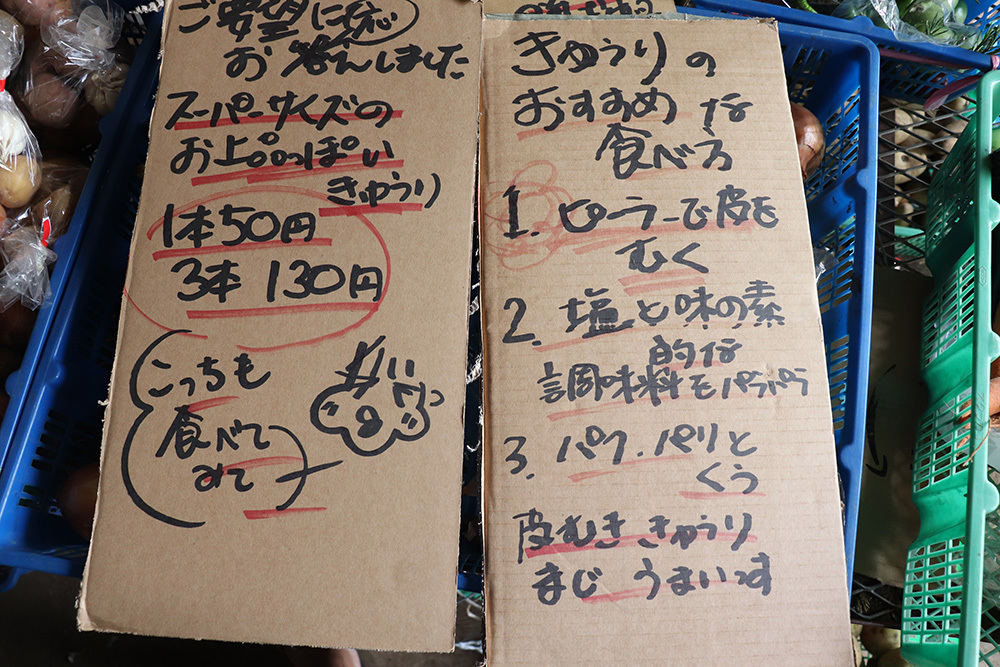 ご要望に応
お答えしました
スーパーサイズの
お上品っぽい
きゅうり
1本50円
3本 130円
こっちも
食べて
みて
きゅうりの
おすすめな
食べろ
1. ピーラーで皮を
むく
2. 塩と味の素
的な
調味料をパラパラ
3. パク.パリと
くう
皮むききゅうり
まじ うまいっす